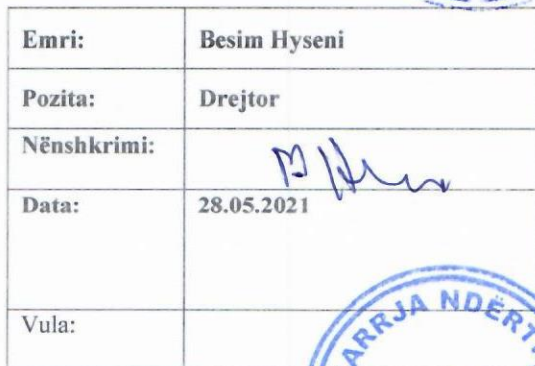 Emri: Besim Hyseni
Pozita: Drejtor
Nënshkrimi:
Data: 28.05.2021
Vula: